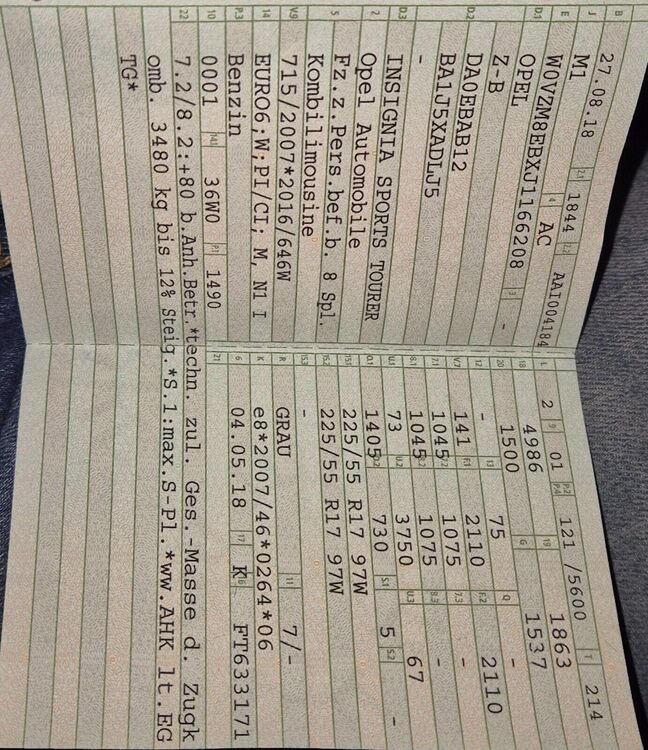 B 27.08.18 2.1 1844 2.2 AAI004184 L 2 9 01 P.2 P.4 121 /5600 T 214
J M1 4 AC 18 4986 19 1863
E W0VZM8EBXJ1166208 3 - 20 1500 G 1537
D.1 OPEL 12 - 13 75 Q -
Z-B V.7 141 F.1 2110 F.2 2110
D.2 DA0EBAB12 7.1 1045 7.2 1075 7.3 -
BA1J5XADLJ5 8.1 1045 8.2 1075 8.3 -
- U.1 73 U.2 3750 U.3 67
D.3 INSIGNIA SPORTS TOURER O.1 1405 O.2 730 S.1 5 S.2 -
2 Opel Automobile 15.1 225/55 R17 97W
5 Fz.z.Pers.bef.b. 8 Spl. 15.2 225/55 R17 97W
Kombilimousine 15.3 -
V.9 715/2007*2016/646W R GRAU 11 7/-
14 EURO6;W;PI/CI; M, N1 I K e8*2007/46*0264*06
P.3 Benzin 6 04.05.18 17 K 16 FT633171
10 0001 14.1 36W0 P.1 1490 21
22 7.2/8.2:+80 b.Anh.Betr.*techn. zul. Ges.-Masse d. Zugk
omb. 3480 kg bis 12% Steig.*S.1:max.S-Pl.*ww.AHK lt.EG
TG*